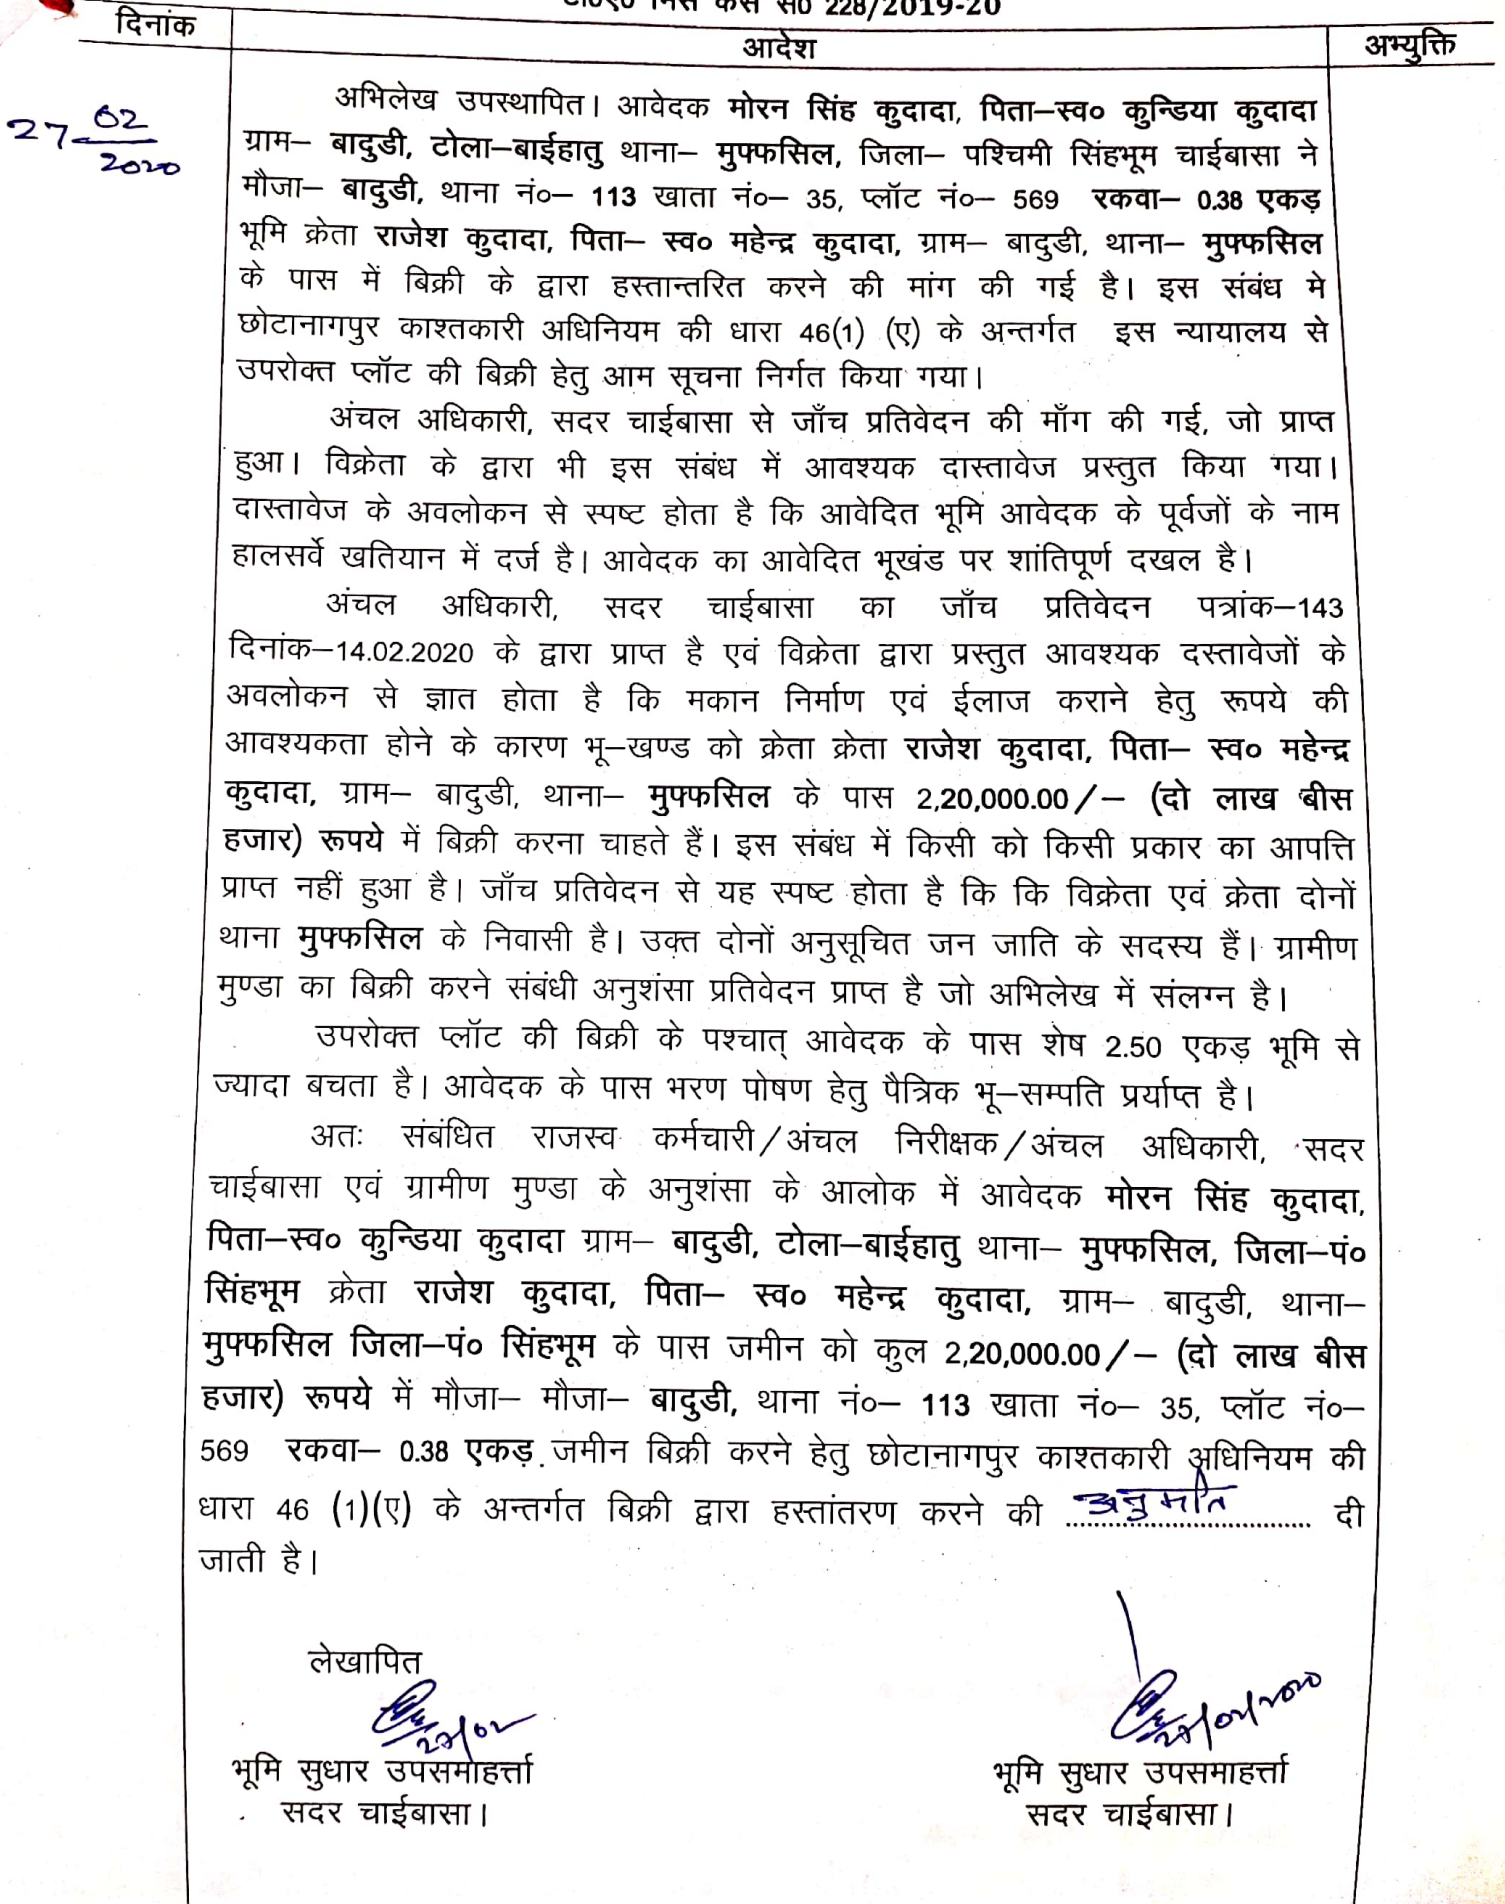 मिस केस सं० 228/2019-20
दिनांक
आदेश
अभ्युक्ति
27-02
2020
अभिलेख उपस्थापित। आवेदक मोरन सिंह कुदादा, पिता–स्व० कुन्डिया कुदादा
ग्राम– बादुडी, टोला–बाईहातु थाना– मुफ्फसिल, जिला– पश्चिमी सिंहभूम चाईबासा ने
मौजा– बादुडी, थाना नं०– 113 खाता नं०– 35, प्लॉट नं०– 569 रकवा– 0.38 एकड़
भूमि क्रेता राजेश कुदादा, पिता– स्व० महेन्द्र कुदादा, ग्राम– बादुडी, थाना– मुफ्फसिल
के पास में बिक्री के द्वारा हस्तान्तरित करने की मांग की गई है। इस संबंध मे
छोटानागपुर काश्तकारी अधिनियम की धारा 46(1) (ए) के अन्तर्गत इस न्यायालय से
उपरोक्त प्लॉट की बिक्री हेतु आम सूचना निर्गत किया गया।
अंचल अधिकारी, सदर चाईबासा से जाँच प्रतिवेदन की माँग की गई, जो प्राप्त
हुआ। विक्रेता के द्वारा भी इस संबंध में आवश्यक दास्तावेज प्रस्तुत किया गया।
दास्तावेज के अवलोकन से स्पष्ट होता है कि आवेदित भूमि आवेदक के पूर्वजों के नाम
हालसर्वे खतियान में दर्ज है। आवेदक का आवेदित भूखंड पर शांतिपूर्ण दखल है।
अंचल अधिकारी, सदर चाईबासा का जाँच प्रतिवेदन पत्रांक–143
दिनांक–14.02.2020 के द्वारा प्राप्त है एवं विक्रेता द्वारा प्रस्तुत आवश्यक दस्तावेजों के
अवलोकन से ज्ञात होता है कि मकान निर्माण एवं ईलाज कराने हेतु रूपये की
आवश्यकता होने के कारण भू–खण्ड को क्रेता क्रेता राजेश कुदादा, पिता– स्व० महेन्द्र
कुदादा, ग्राम– बादुडी, थाना– मुफ्फसिल के पास 2,20,000.00/– (दो लाख बीस
हजार) रूपये में बिक्री करना चाहते हैं। इस संबंध में किसी को किसी प्रकार का आपत्ति
प्राप्त नहीं हुआ है। जाँच प्रतिवेदन से यह स्पष्ट होता है कि कि विक्रेता एवं क्रेता दोनों
थाना मुफ्फसिल के निवासी है। उक्त दोनों अनुसूचित जन जाति के सदस्य हैं। ग्रामीण
मुण्डा का बिक्री करने संबंधी अनुशंसा प्रतिवेदन प्राप्त है जो अभिलेख में संलग्न है।
उपरोक्त प्लॉट की बिक्री के पश्चात् आवेदक के पास शेष 2.50 एकड़ भूमि से
ज्यादा बचता है। आवेदक के पास भरण पोषण हेतु पैत्रिक भू–सम्पति प्रर्याप्त है।
अतः संबंधित राजस्व कर्मचारी/अंचल निरीक्षक/अंचल अधिकारी, सदर
चाईबासा एवं ग्रामीण मुण्डा के अनुशंसा के आलोक में आवेदक मोरन सिंह कुदादा,
पिता–स्व० कुन्डिया कुदादा ग्राम– बादुडी, टोला–बाईहातु थाना– मुफ्फसिल, जिला–पं०
सिंहभूम क्रेता राजेश कुदादा, पिता– स्व० महेन्द्र कुदादा, ग्राम– बादुडी, थाना–
मुफ्फसिल जिला–पं० सिंहभूम के पास जमीन को कुल 2,20,000.00/– (दो लाख बीस
हजार) रूपये में मौजा– मौजा– बादुडी, थाना नं०– 113 खाता नं०– 35, प्लॉट नं०–
569 रकवा– 0.38 एकड़ जमीन बिक्री करने हेतु छोटानागपुर काश्तकारी अधिनियम की
धारा 46 (1)(ए) के अन्तर्गत बिक्री द्वारा हस्तांतरण करने की अनुमति दी
जाती है।
लेखापित
27/02
27/02/2020
भूमि सुधार उपसमाहर्त्ता
सदर चाईबासा।
भूमि सुधार उपसमाहर्त्ता
सदर चाईबासा।